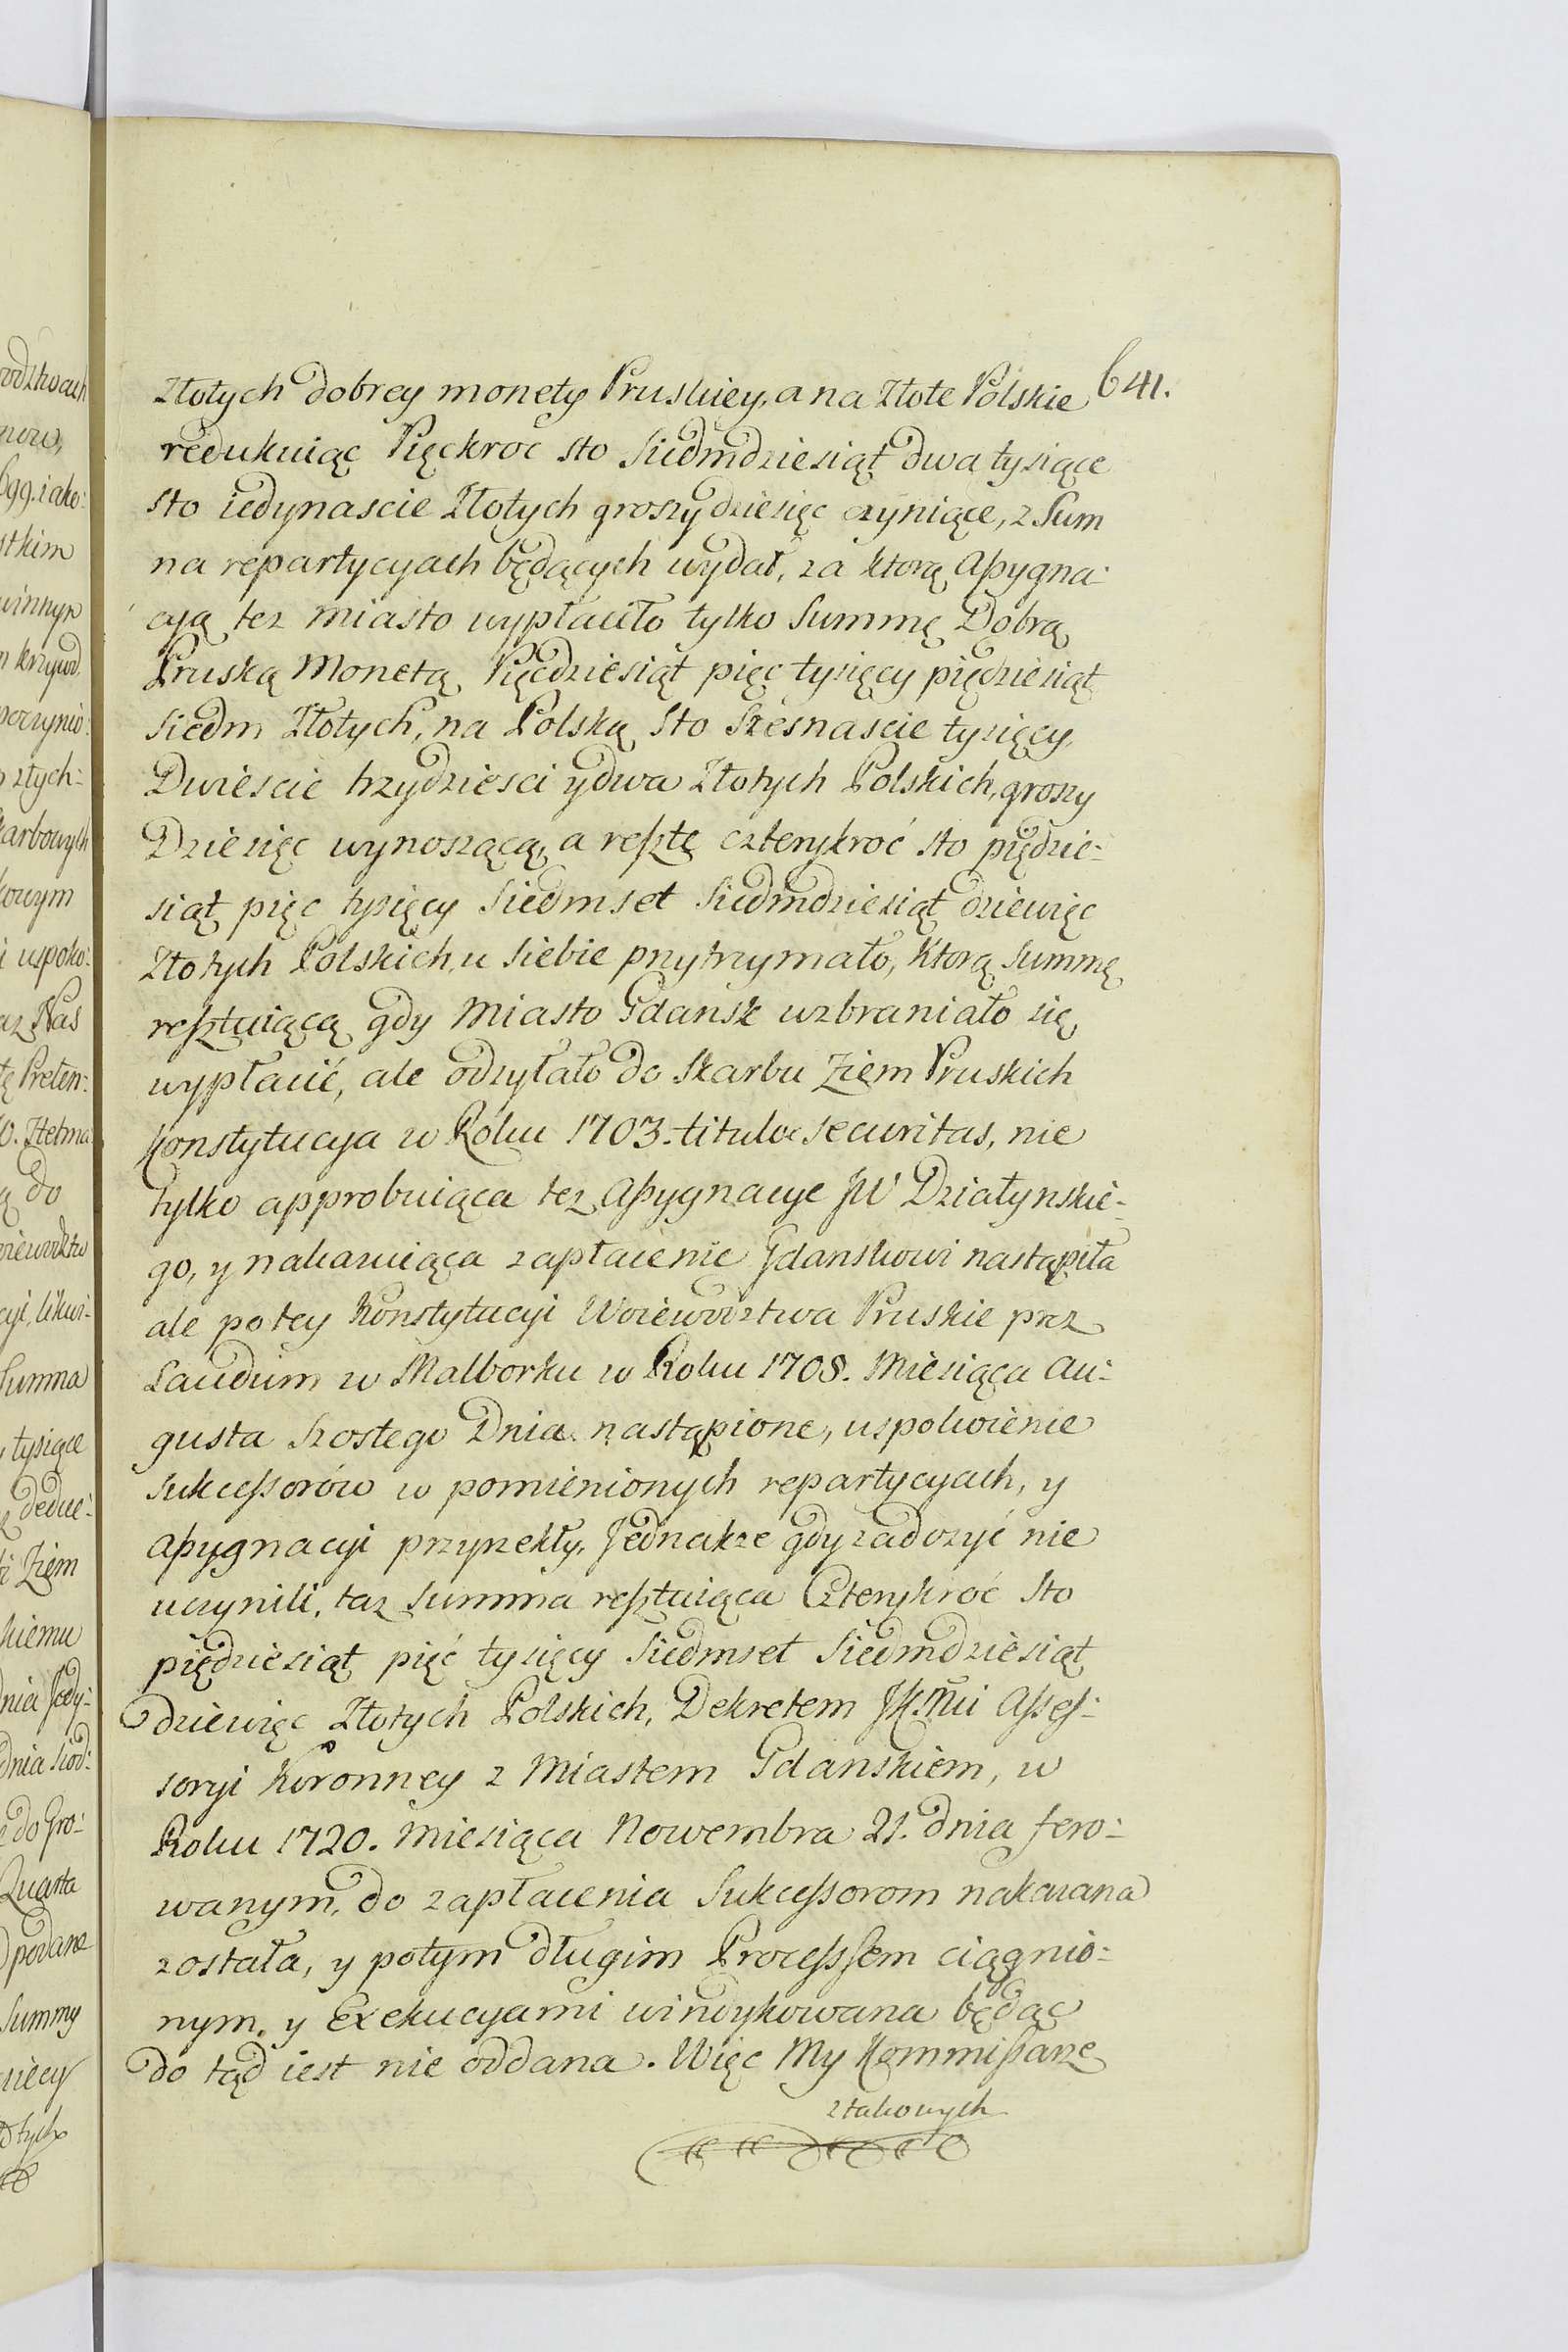 641.
złotych dobrey monety Pruskiey, a na złote Polskie
redukuiąc Pięckroc sto siedmdziesiąt dwa tysiące
sto iedynascie złotych groszy dziesięc czyniące, z Sum
na repartycyach będących wydał, za ktorą assygna:
cyą tez miasto wypłaciło tylko Summę Dobrą
Pruską Monetą Pięcdziesiąt pięc tysięcy pięcdziesiąt
siedm złotych, na Polską sto szesnascie tysięcy,
Dwiescie trzydziesci y dwa złotych Polskich, groszy
Dziesięc wynoszącą, a resztę czterykroć sto pięcdzie:
siąt pięc tysięcy siedmset siedmdziesiąt dziewięc
złotych Polskich, u siebie przytrzymało, ktorą summę
resztuiącą gdy Miasto Gdansk wzbraniało się
wypłacić, ale odsyłało do skarbu Ziem Pruskich
Konstytucya w Roku 1703. titulo securitas, nie
tylko approbuiąca tez assygnacye JW Działynskie:
go, y nakazuiąca zapłacenie Gdanskowi nastąpiła
ale po tey Konstytucyi Woiewodztwa Pruskie prez
Laudum w Malborku w Roku 1708. Miesiąca Au:
gusta szostego Dnia nastąpione, uspokoienie
sukcessorów w pomienionych repartycyach, y
assygnacyi przyrzekły. Jednakze gdy zadosyć nie
uczynili, taz summa resztuiąca czterykroć sto
pięcdziesiąt pięć tysięcy siedmset siedmdziesiąt
dziewięc złotych Polskich, Dekretem JKMci Asses:
soryi Koronney z Miastem Gdanskiem, w
Roku 1720. Miesiąca Nowembra 21. dnia fero:
wanym, do zapłacenia Sukcessorom nakazana
została, y potym długim Processem ciągnio:
nym, y Exekucyami windykowana będąc
do tąd iest nie oddana. Więc My Kommissarze
z takowych